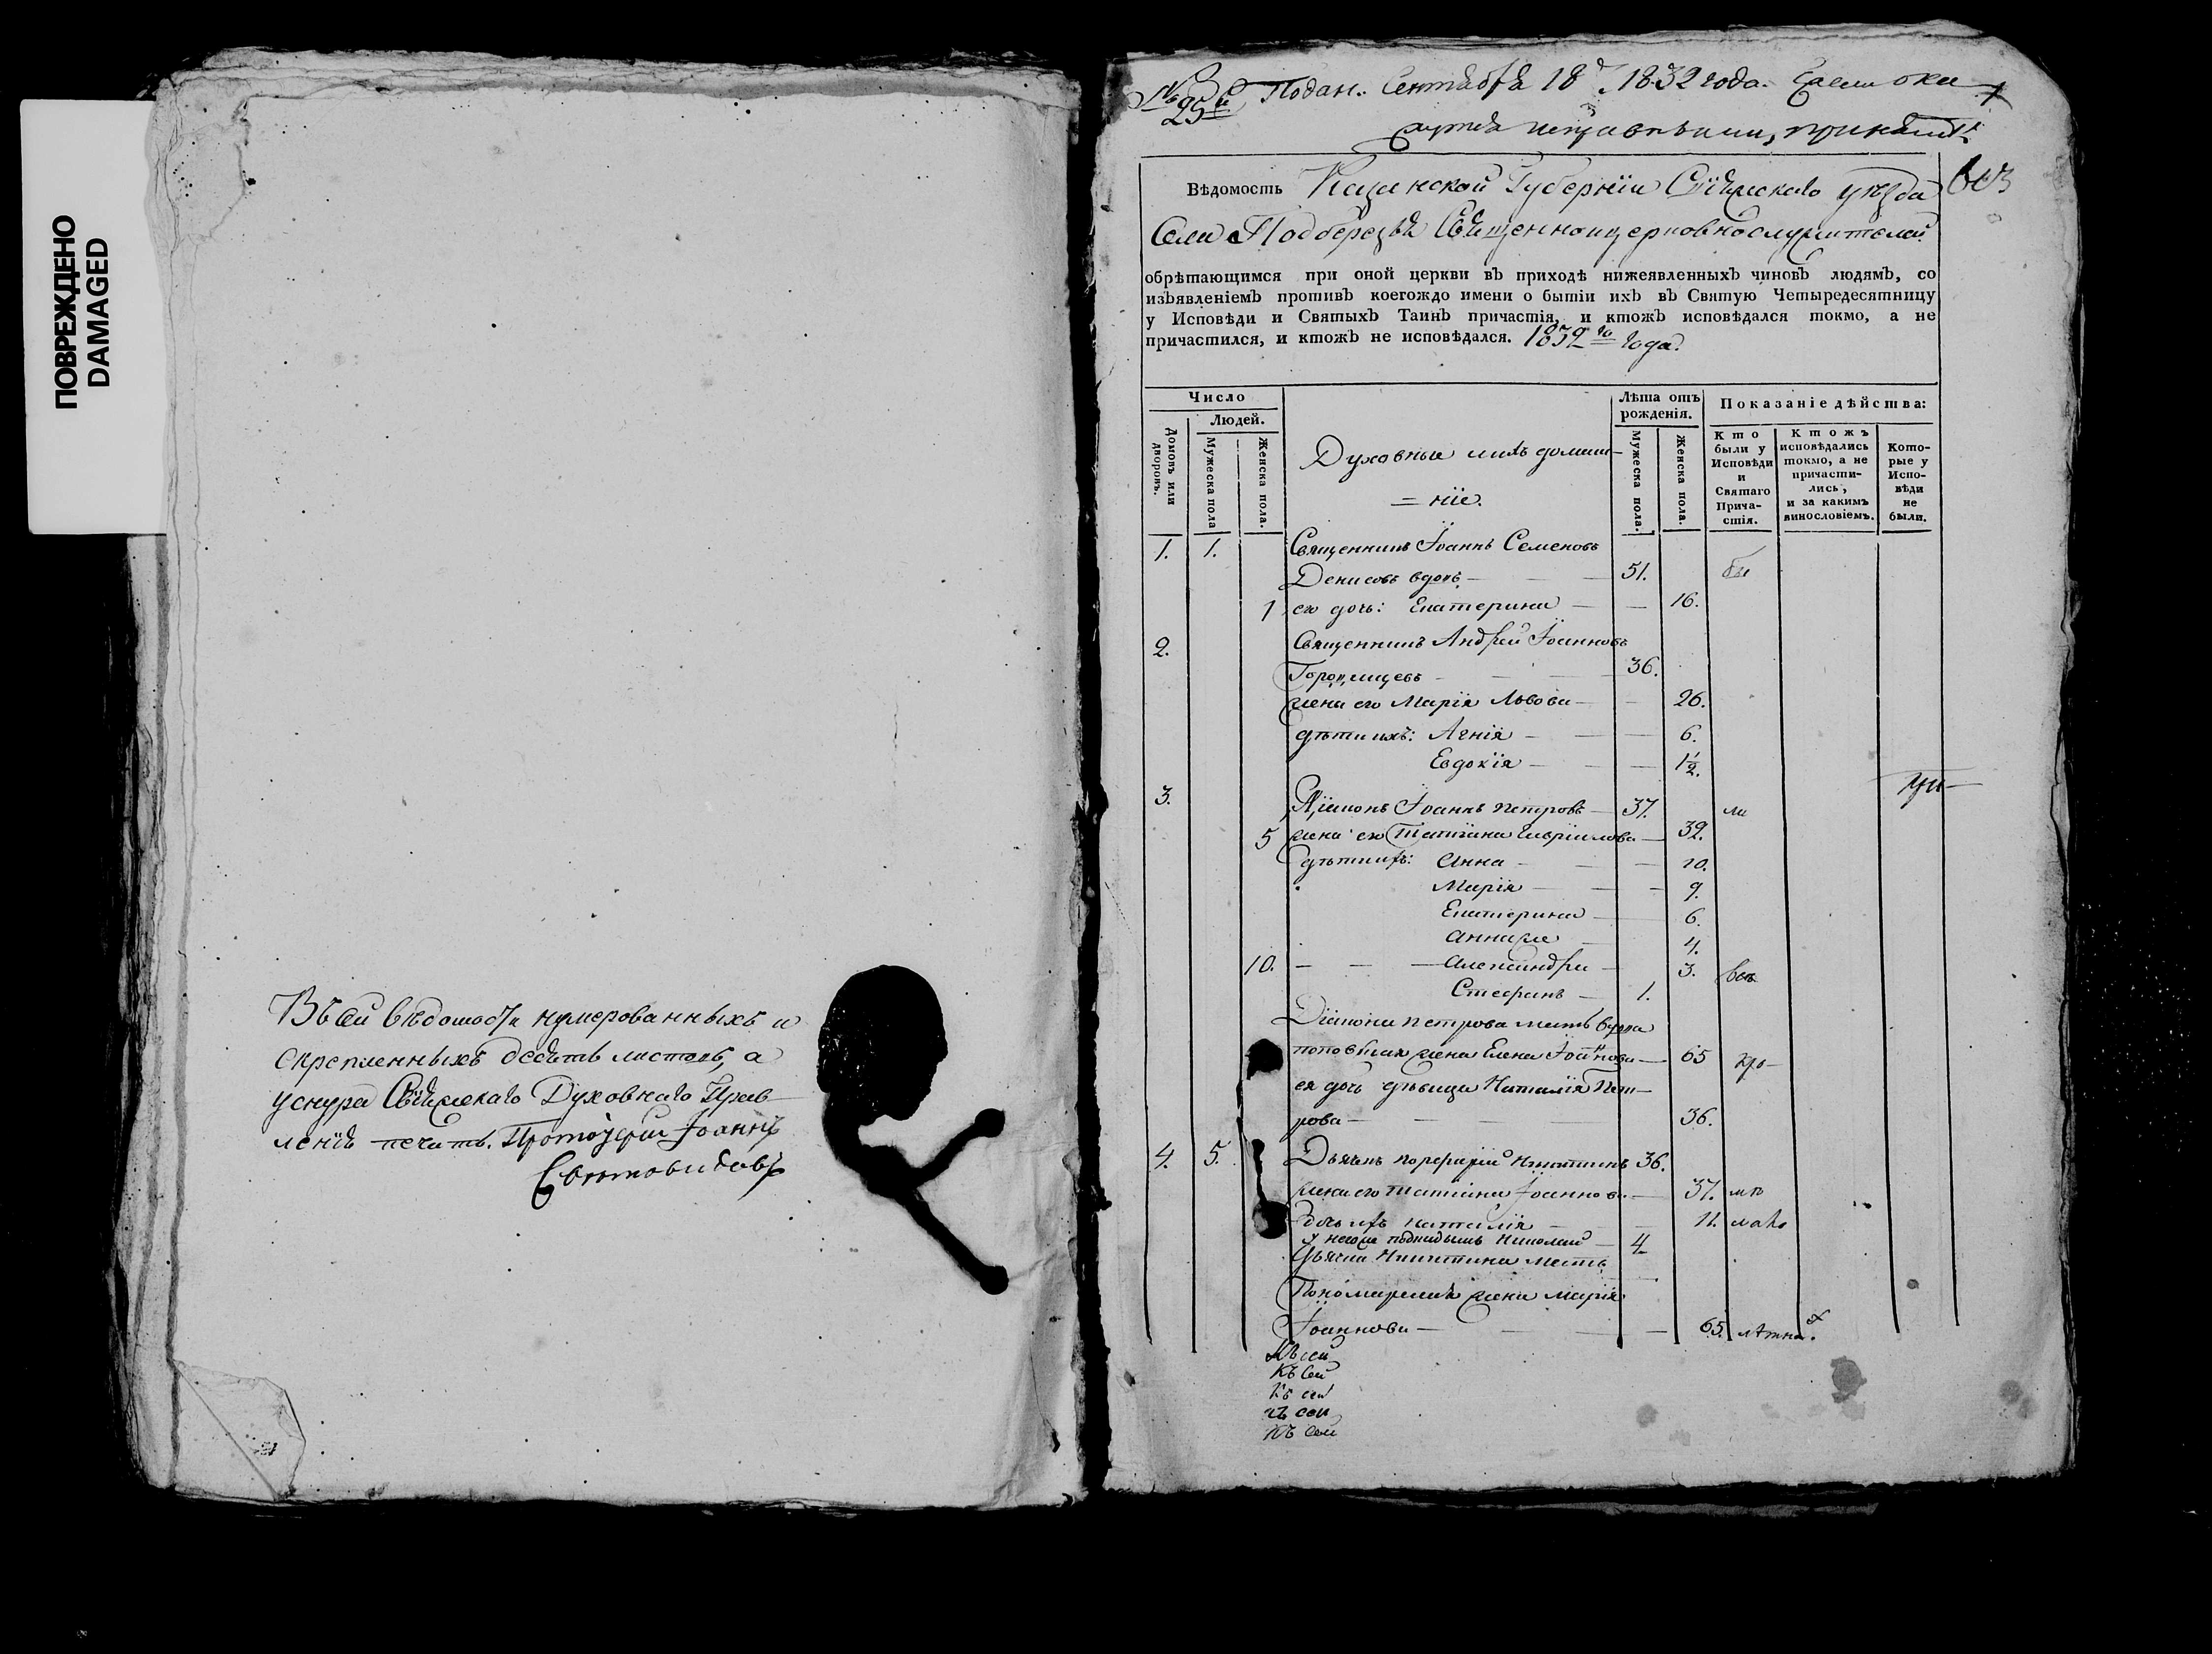 ПОВРЕЖДЕНО
DAMAGED
Въ сей вѣдомости нумерованныхъ и
скрепленныхъ десять листовъ, а
у снура Свіяжскаго Духовнаго Прав-
ленія печать. Протоіерей Іоаннъ
Подан. Сентября 18 д. 1832 года.
Вѣдомость Казанской Губерніи Свіяжскаго уѣзда
Села Подберезья Священноицерковнослужителей
обрѣтающимся при оной церкви въ приходѣ нижеявленныхъ чиновъ людямъ, со
изъявленіемъ противъ коегождо имени о бытіи ихъ въ Святую Четыредесятницу
у Исповѣди и Святыхъ Таинъ причастія, и ктожъ исповѣдался токмо, а не
причастился, и ктожъ не исповѣдался. 1832 го года.
Число
Людей.
Домовъ или дворовъ.
Мужеска пола
Женска пола.
Духовные ихъ домаш-
=ніе.
Лѣта отъ рожденія.
Мужеска пола.
Женска пола.
Показаніе дѣйства:
Кто были у Исповѣди и Святаго Причастія.
Ктожъ исповѣдались токмо, а не причастились, и за какимъ винословіемъ.
Которые у Исповѣди не были.
1. 1. Священникъ Іоаннъ Семеновъ
Денисовъ вдовъ — 51. бы
1 его дочь: Екатерина — 16.
2. Священникъ Андрей Іоанновъ
36.
жена его Марія Львова — 26.
дѣти ихъ: Агнія — 6.
Евдокія — 1½.
3. Діаконъ Іоаннъ Петровъ — 37. ли
5 жена его Татіана Гавріилова — 32.
дѣти ихъ: Анна — 10.
Марія — 9.
Екатерина — 6.
4.
10. — Александра — 3. всѣ
Стефанъ — 1.
Діакона Петрова мать вдова
жена Елена Іоаннова — 65 кро-
ея дочь дѣвица Наталія Пет-
рова — 36.
4. 5. Дьячекъ Порфирій Никитинъ 36.
жена его Татіана Іоаннова — 37. мѣ
дочь ихъ Наталія — 11. мало
у него же подкидышъ Николай — 4
Дьячка Никитина мать
Пономарская жена Марія
Іоаннова — 65. лѣтна.
Къ сей
Къ сей
Къ сей
Къ сей
Къ сей